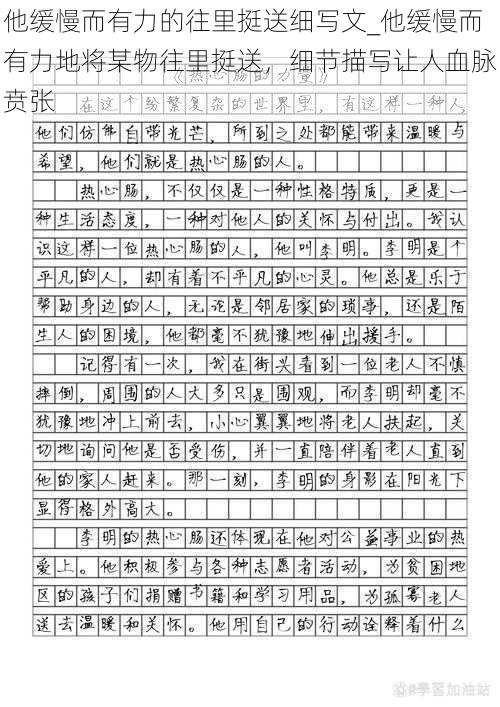 他缓慢而有力的往里挺送细写文_他缓慢而
有力地将某物往里挺送，细节描写让人血脉
贲张
《热心肠的力量》
在这个纷繁复杂的世界里，有这样一种人，
他们仿佛自带光芒，所到之处都能带来温暖与
希望，他们就是热心肠的人。
热心肠，不仅仅是一种性格特质，更是一
种生活态度，一种对他人的关怀与付出。我认
识这样一位热心肠的人，他叫李明。李明是个
平凡的人，却有着不平凡的心灵。他总是乐于
帮助身边的人，无论是邻居家的琐事，还是陌
生人的困境，他都毫不犹豫地伸出援手。
记得有一次，我在街头看到一位老人不慎
摔倒，周围的人大多只是围观，而李明却毫不
犹豫地冲上前去，小心翼翼地将老人扶起，关
切地询问他是否受伤，并一直陪伴着老人直到
他的家人赶来。那一刻，李明的身影在阳光下
显得格外高大。
李明的热心肠还体现在他对公益事业的热
爱上。他积极参与各种志愿者活动，为贫困地
区的孩子们捐赠书籍和学习用品，为孤寡老人
送去温暖和关怀。他用自己的行动诠释着什么
學習加油站